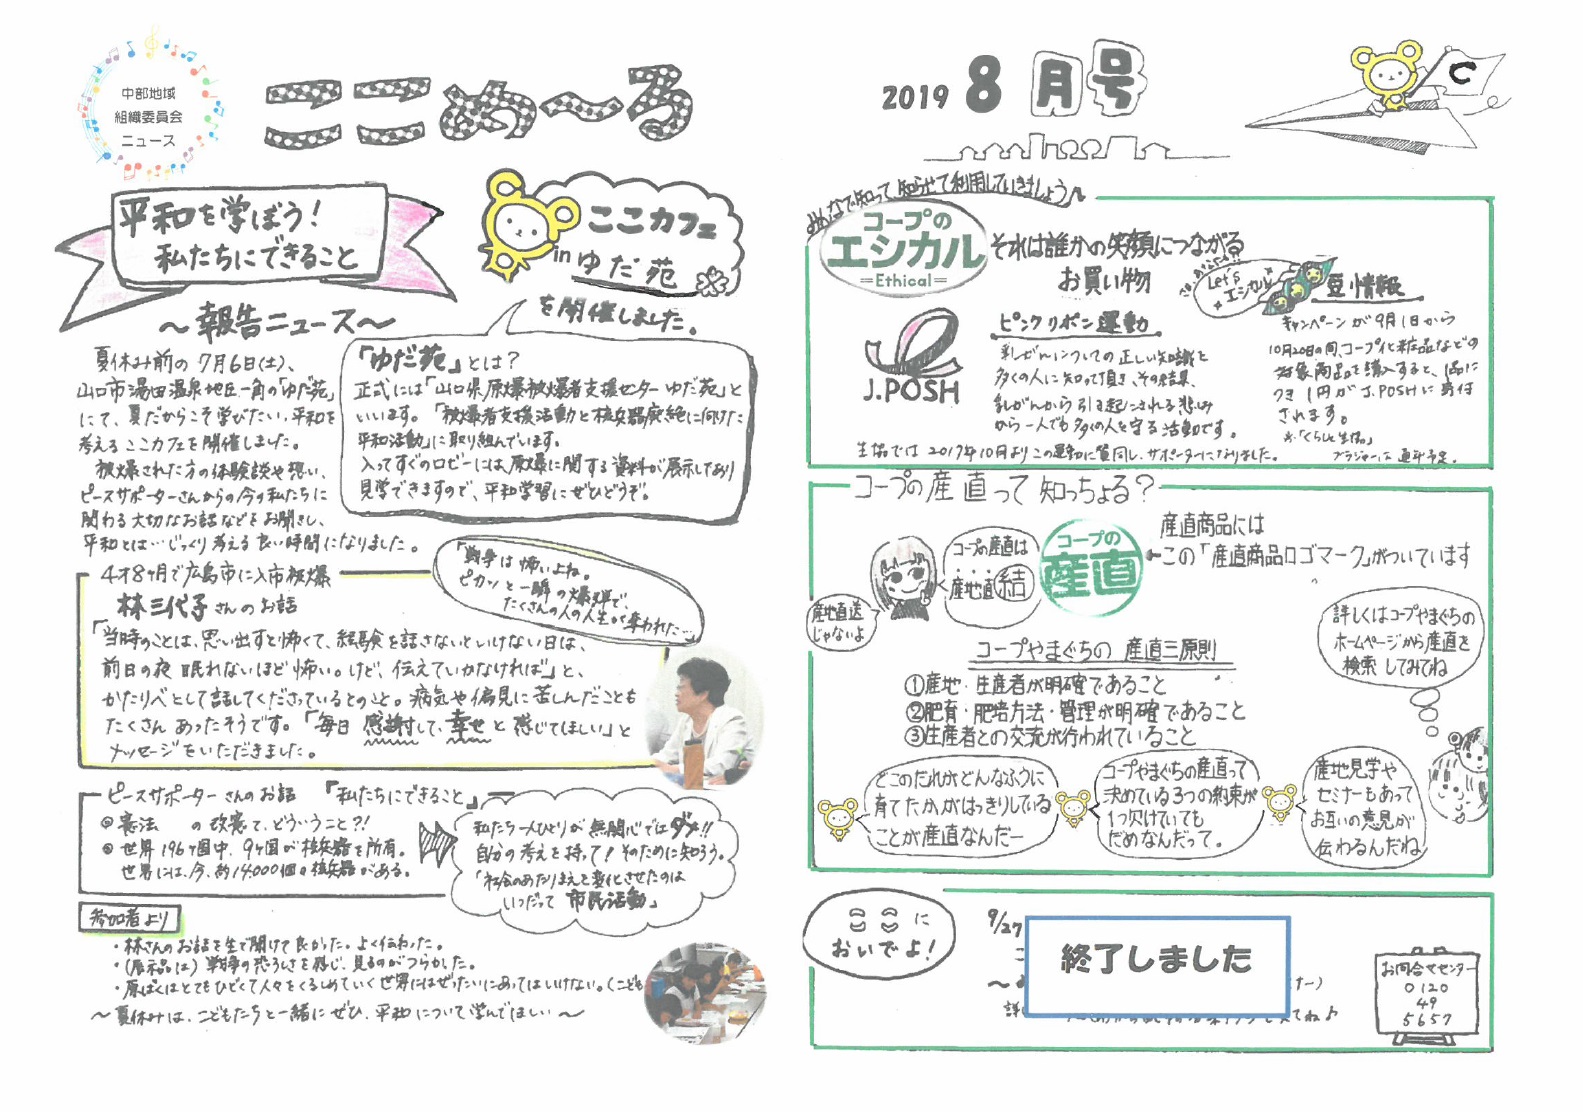 中部地域
組織委員会
ニュース
ここめ〜る
2019 8月号
C
平和を学ぼう!
私たちにできること
〜報告ニュース〜
ここカフェ
in ゆだ苑
を開催しました。
夏休み前の7月6日(土)、
山口市湯田温泉地区一角の「ゆだ苑」
にて、夏だからこそ学びたい、平和を
考えるここカフェを開催しました。
被爆された方の体験談や想い、
ピースサポーターさんからの今の私たちに
関わる大切なお話などをお聞きし、
平和とは…じっくり考える良い時間になりました。
「ゆだ苑」とは?
正式には「山口県原爆被爆者支援センターゆだ苑」と
いいます。「被爆者支援活動と核兵器廃絶に向けた
平和活動」に取り組んでいます。
入ってすぐのロビーには原爆に関する資料が展示してあり
見学できますので、平和学習にぜひどうぞ。
4才8ヶ月で広島市に入市被爆
林三代子さんのお話
「戦争は怖いよね。
ピカッと一瞬の爆弾で、
たくさんの人の人生が奪われた…」
「当時のことは、思い出すと怖くて、経験を話さないといけない日は、
前日の夜眠れないほど怖い。けど、伝えていかなければ」と、
かたりべとして話してくださっているとのこと。病気や偏見に苦しんだことも
たくさんあったそうです。「毎日感謝して、幸せと感じてほしい」と
メッセージをいただきました。
ピースサポーターさんのお話 『私たちにできること』
◎憲法 の改憲て、どういうこと?!
◎世界196ヶ国中、9ヶ国が核兵器を所有。
世界には、今、約14000個の核兵器がある。
私たち一人ひとりが無関心ではダメ!!
自分の考えを持って!そのために知ろう。
「社会のあたりまえを変化させたのは
いつだって市民活動」
参加者より
・林さんのお話を生で聞けて良かった。よく伝わった。
・(展示品は)戦争の恐ろしさを感じ、見るのがつらかった。
・原ばくはとてもひどくて人々をくるしめていく世界にはぜったいにあってはいけない。(こども
〜夏休みは、こどもたちと一緒にぜひ、平和について学んでほしい〜
みんなで知って知らせて利用していきましょう♪
コープの
エシカル
Ethical
それは誰かの笑顔につながる
お買い物
Let's
エシカル
豆情報
J.POSH
ピンクリボン運動
乳がんについての正しい知識を
多くの人に知って頂き、その結果、
乳がんから引き起こされる悲しみ
から一人でも多くの人を守る活動です。
キャンペーンが9月1日から
10月20日の間、コープ化粧品などの
対象商品を購入すると、1品に
つき1円がJ.POSHに寄付
されます。
※「くらしと生協」
ブラジャーは通年予定。
生協では2017年10月よりこの運動に賛同し、サポーターになりました。
コープの産直って知っちょる?
コープの産直は
産地直結
産地直送
じゃないよ
コープの
産直
産直商品には
この「産直商品ロゴマーク」がついています
コープやまぐちの 産直三原則
①産地・生産者が明確であること
②肥育・肥培方法・管理が明確であること
③生産者との交流が行われていること
詳しくはコープやまぐちの
ホームページから産直を
検索してみてね
どこのだれがどんなふうに
育てたかがはっきりしている
ことが産直なんだー
コープやまぐちの産直って
決めている3つの約束が
1つ欠けていても
だめなんだって。
産地見学や
セミナーもあって
お互いの意見が
伝わるんだね
ここに
おいでよ!
9/27
終了しました
お問合せセンター
0120
49
5657